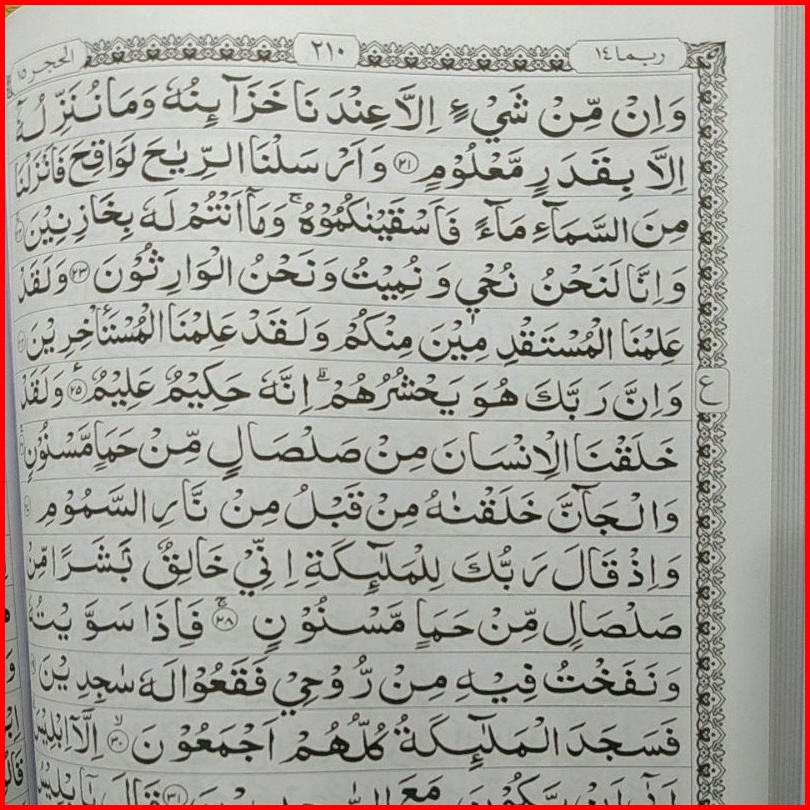 ربما ١٤ ٢١٠ الحجر ١٥
وَاِنْ مِّنْ شَيْءٍ اِلَّا عِنْدَنَا خَزَآئِنُهٗ وَمَا نُنَزِّلُهٗٓ
اِلَّا بِقَدَرٍ مَّعْلُوْمٍ ﴿٢١﴾ وَاَرْسَلْنَا الرِّيٰحَ لَوَاقِحَ فَاَنْزَلْنَا
مِنَ السَّمَآءِ مَآءً فَاَسْقَيْنٰكُمُوْهُ ۚ وَمَآ اَنْتُمْ لَهٗ بِخَازِنِيْنَ ﴿٢٢﴾
وَاِنَّا لَنَحْنُ نُحْيٖ وَنُمِيْتُ وَنَحْنُ الْوَارِثُوْنَ ﴿٢٣﴾ وَلَقَدْ
عَلِمْنَا الْمُسْتَقْدِمِيْنَ مِنْكُمْ وَلَقَدْ عَلِمْنَا الْمُسْتَاْخِرِيْنَ ﴿٢٤﴾
وَاِنَّ رَبَّكَ هُوَ يَحْشُرُهُمْ ۗ اِنَّهٗ حَكِيْمٌ عَلِيْمٌ ﴿٢٥﴾ وَلَقَدْ
ع
خَلَقْنَا الْاِنْسَانَ مِنْ صَلْصَالٍ مِّنْ حَمَاٍ مَّسْنُوْنٍ
وَالْجَآنَّ خَلَقْنٰهُ مِنْ قَبْلُ مِنْ نَّارِ السَّمُوْمِ
وَاِذْ قَالَ رَبُّكَ لِلْمَلٰٓئِكَةِ اِنِّيْ خَالِقٌ بَشَرًا مِّنْ
صَلْصَالٍ مِّنْ حَمَاٍ مَّسْنُوْنٍ ۚ ﴿٢٨﴾ فَاِذَا سَوَّيْتُهٗ
وَنَفَخْتُ فِيْهِ مِنْ رُّوْحِيْ فَقَعُوْا لَهٗ سٰجِدِيْنَ
فَسَجَدَ الْمَلٰٓئِكَةُ كُلُّهُمْ اَجْمَعُوْنَ ۙ ﴿٣٠﴾ اِلَّآ اِبْلِيْسَ